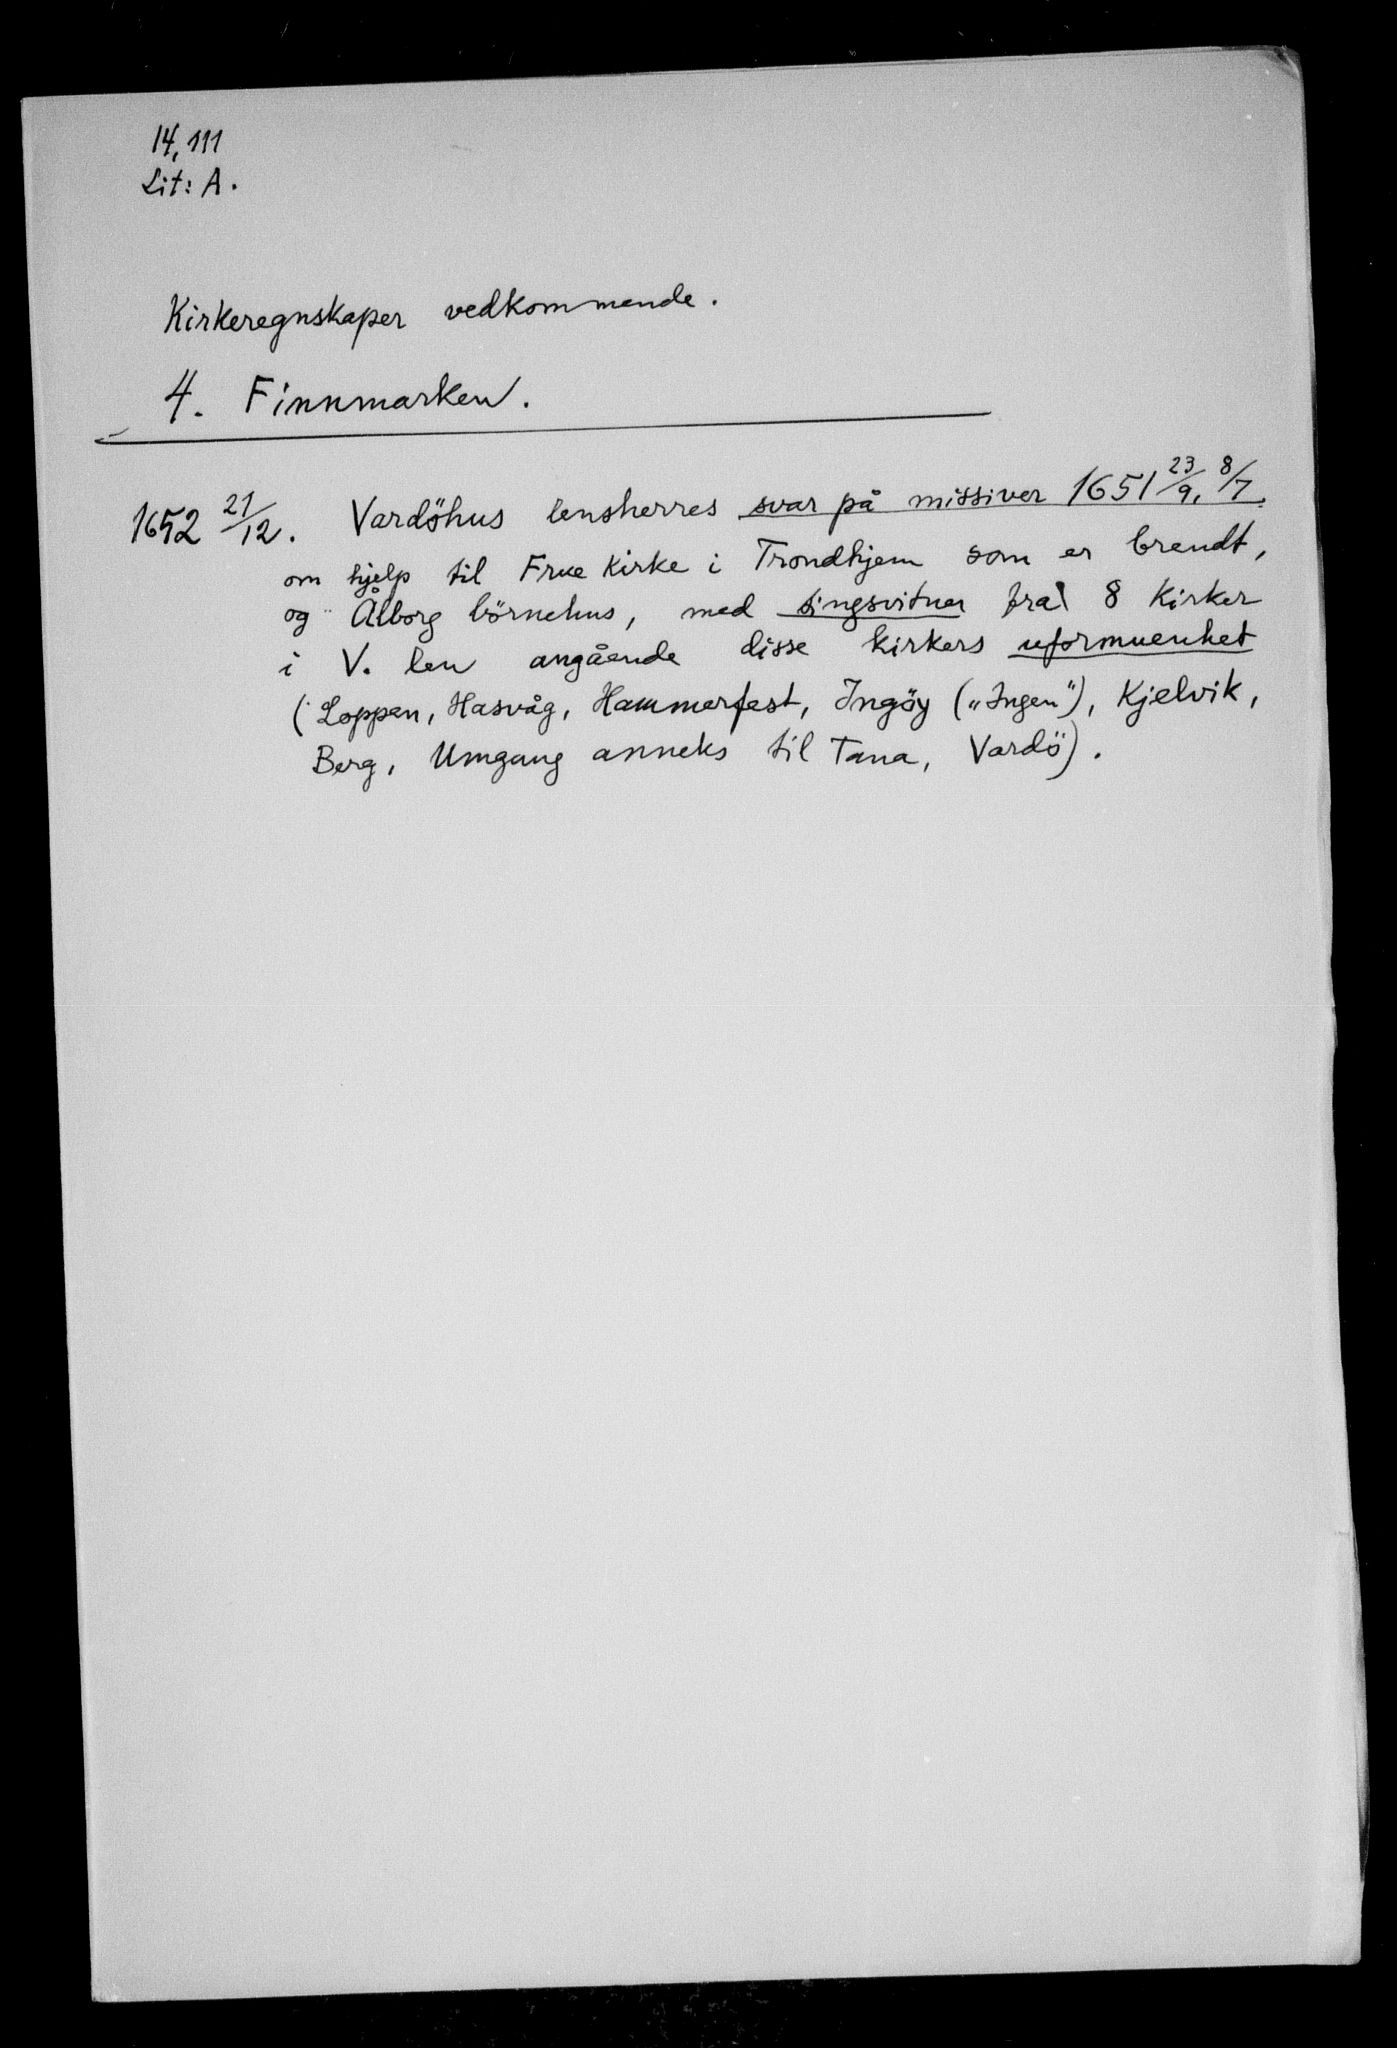 14, 111
Lit: A.
Kirkeregnskaper vedkommende.
4. Finnmarken.
1652 21/12. Vardöhus lensherres svar på missiver 1651 23/9, 8/7.
om hjelp til Frue Kirke i Trondhjem som er brendt,
og Ålborg börnehus, med tingsvitner fra 8 Kirker
i V. len angående disse kirkers uformuenhet
(Loppen, Hasvåg, Hammerfest, Ingöy („Ingen"), Kjelvik,
Berg, Umgang anneks til Tana, Vardö).